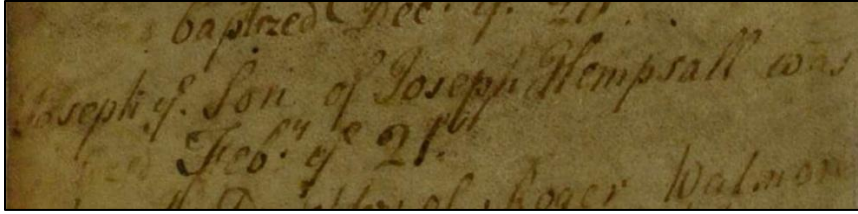 baptized Dec.r ye. 21
Joseph ye. Son of Joseph Hempsall was
Feb.ry ye 21.
of Roger Walmor